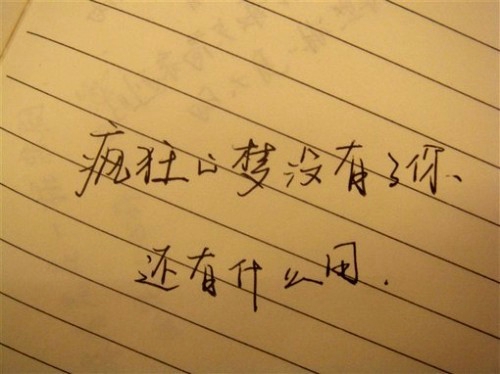 疯狂的梦没有了你、
还有什么用.